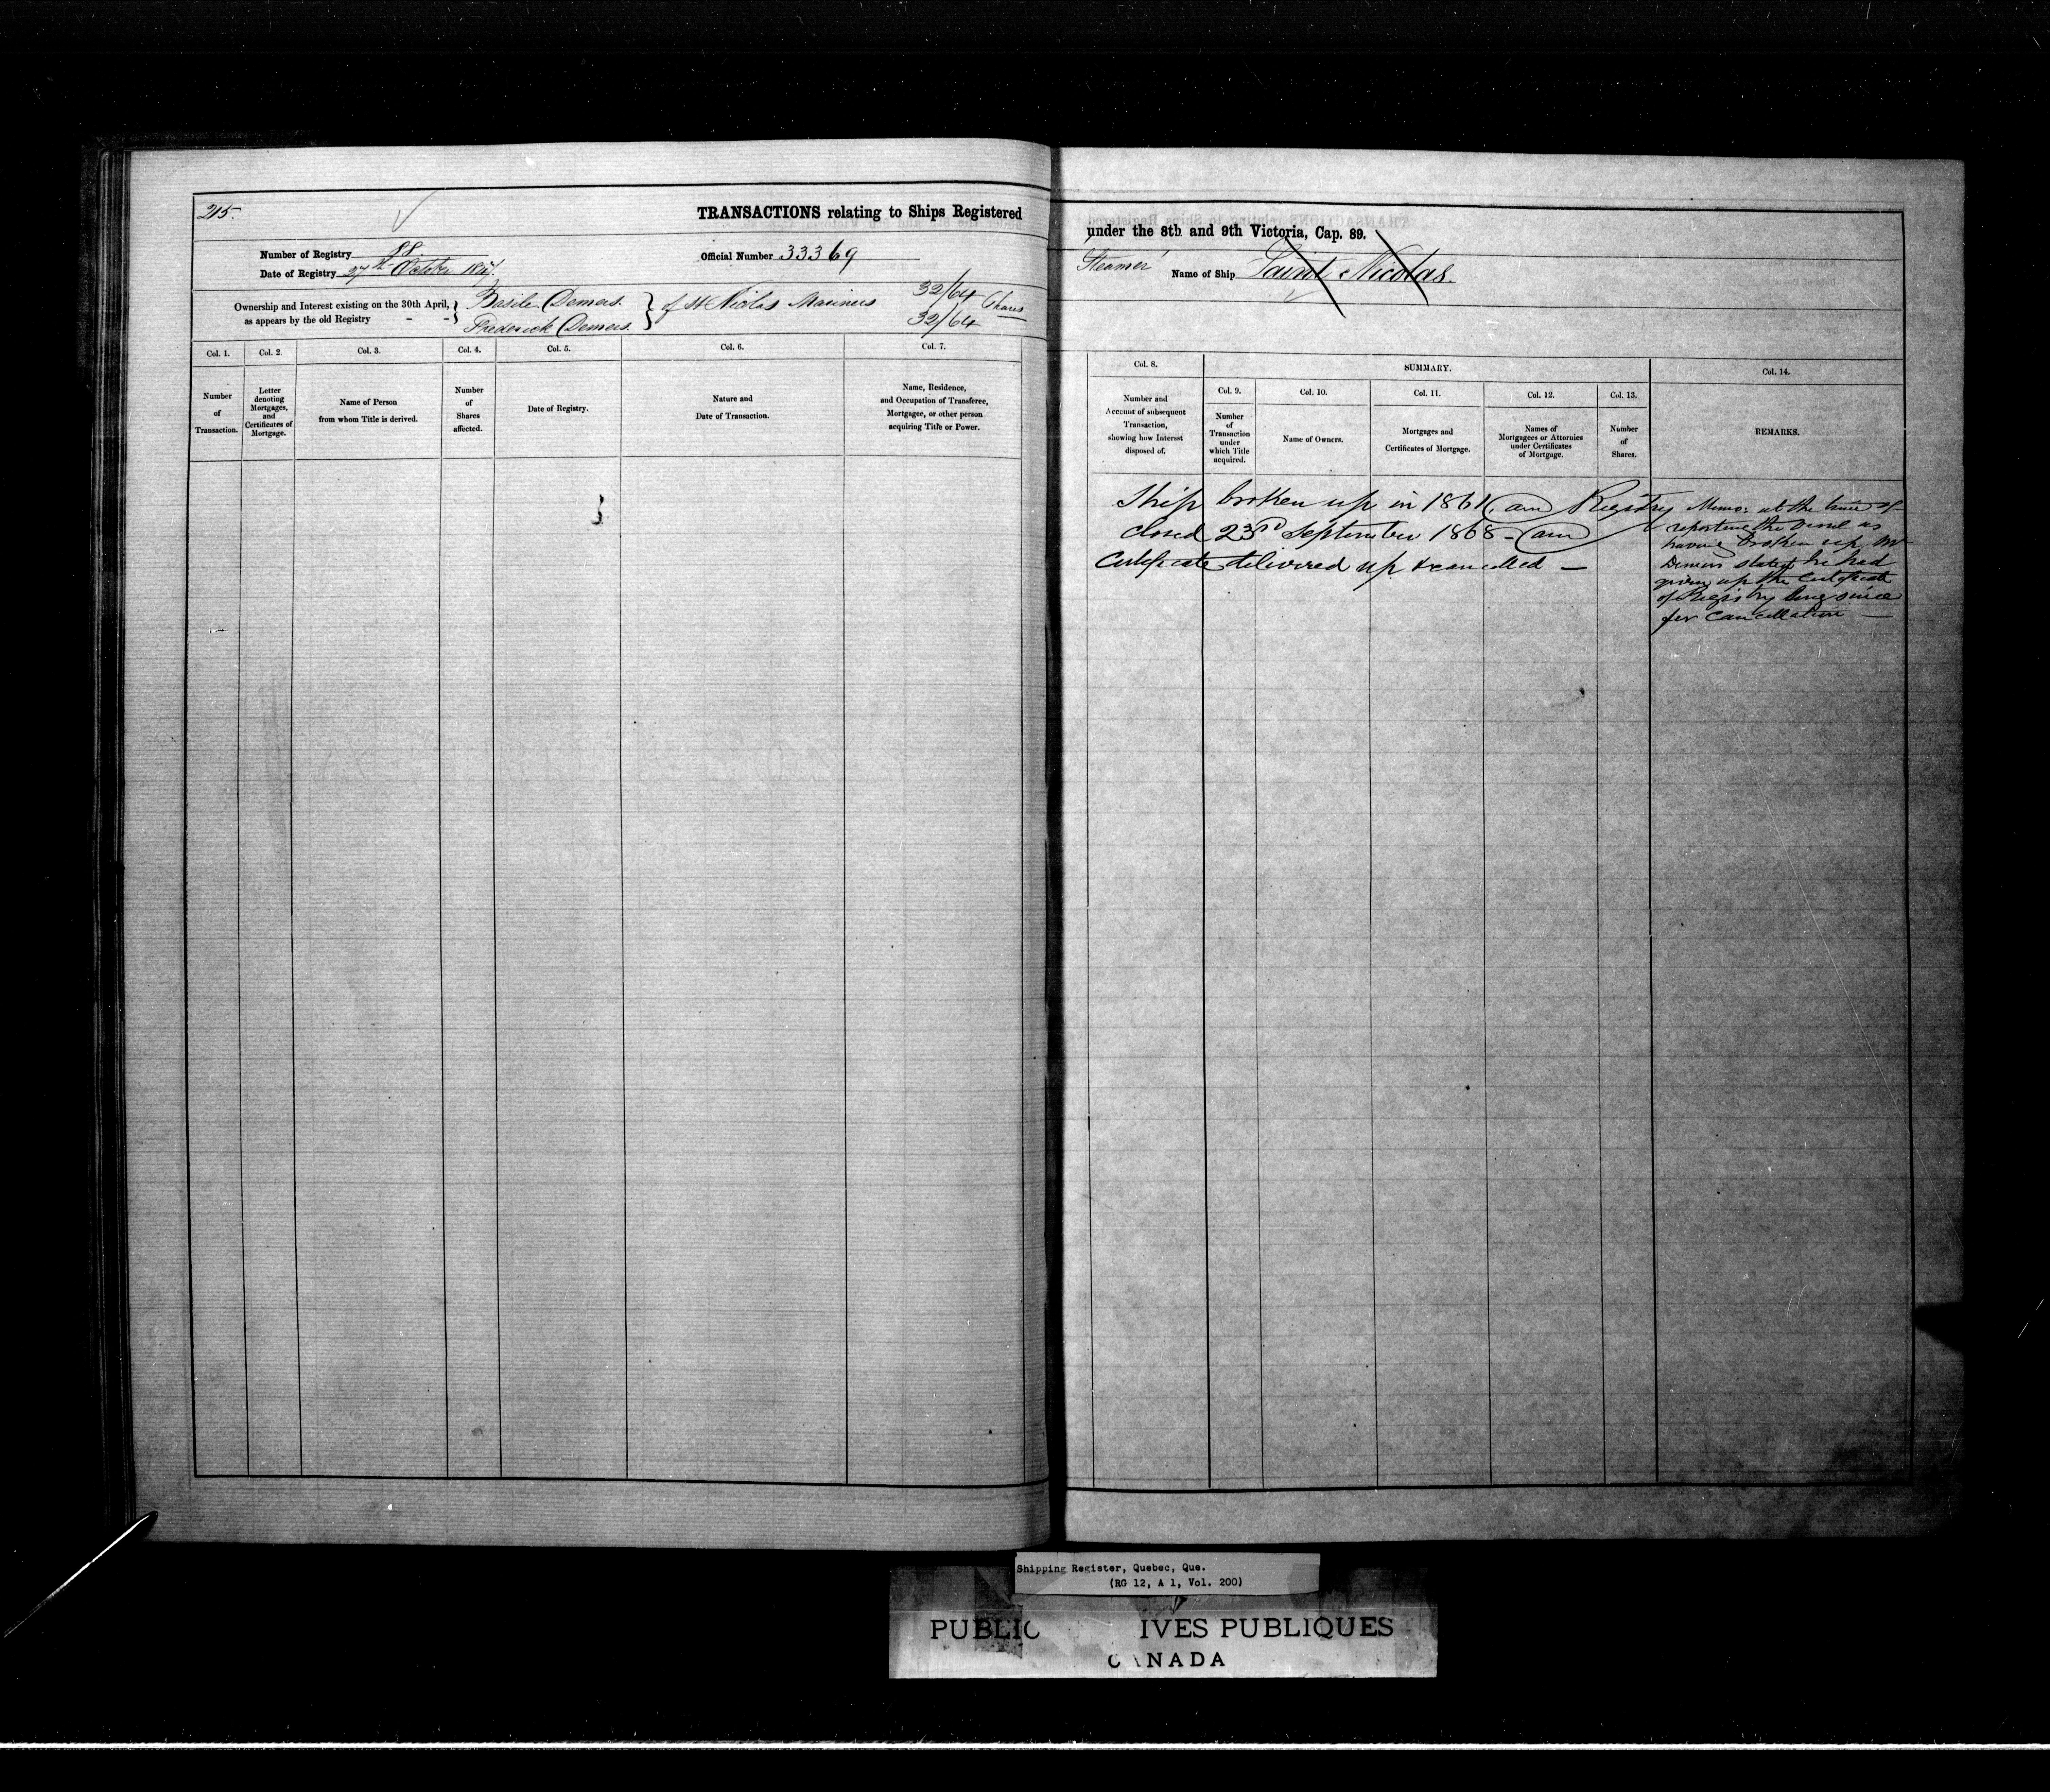 215.
TRANSACTIONS relating to Ships Registered
Number of Registry 88
Official Number 33369
Date of Registry 27th October 1847.
Ownership and Interest existing on the 30th April,
as appears by the old Registry - -
Basile Demers.
Frederick Demers.
of St Nicolas Mariners
32/64
32/64
Shares
Col. 1.
Col. 2.
Col. 3.
Col. 4.
Col. 5.
Col. 6.
Col. 7.
Number
of
Transaction.
Letter
denoting
Mortgages,
and
Certificates of
Mortgage.
Name of Person
from whom Title is derived.
Number
of
Shares
affected.
Date of Registry.
Nature and
Date of Transaction.
Name, Residence,
and Occupation of Transferee,
Mortgagee, or other person
acquiring Title or Power.
under the 8th and 9th Victoria, Cap. 89.
Steamer Name of Ship Saint Nicolas.
Col. 8.
SUMMARY.
Col. 14.
Number and
Account of subsequent
Transaction,
showing how Interest
disposed of.
Col. 9.
Col. 10.
Col. 11.
Col. 12.
Col. 13.
Number
of
Transaction
under
which Title
acquired.
Name of Owners.
Mortgages and
Certificates of Mortgage.
Names of
Mortgagees or Attornies
under Certificates
of Mortgage.
Number
of
Shares.
REMARKS.
Ship broken up in 1861, am Registry
closed 23rd September 1868 - am
Certificate delivered up & cancelled —
Memo: at the time of
reporting the Vessel as
having broken up Mr
Demers stated he had
given up the Certificate
of Registry long since
for Cancellation —
Shipping Register, Quebec, Que.
(RG 12, A 1, Vol. 200)
PUBLIC IVES PUBLIQUES
CANADA